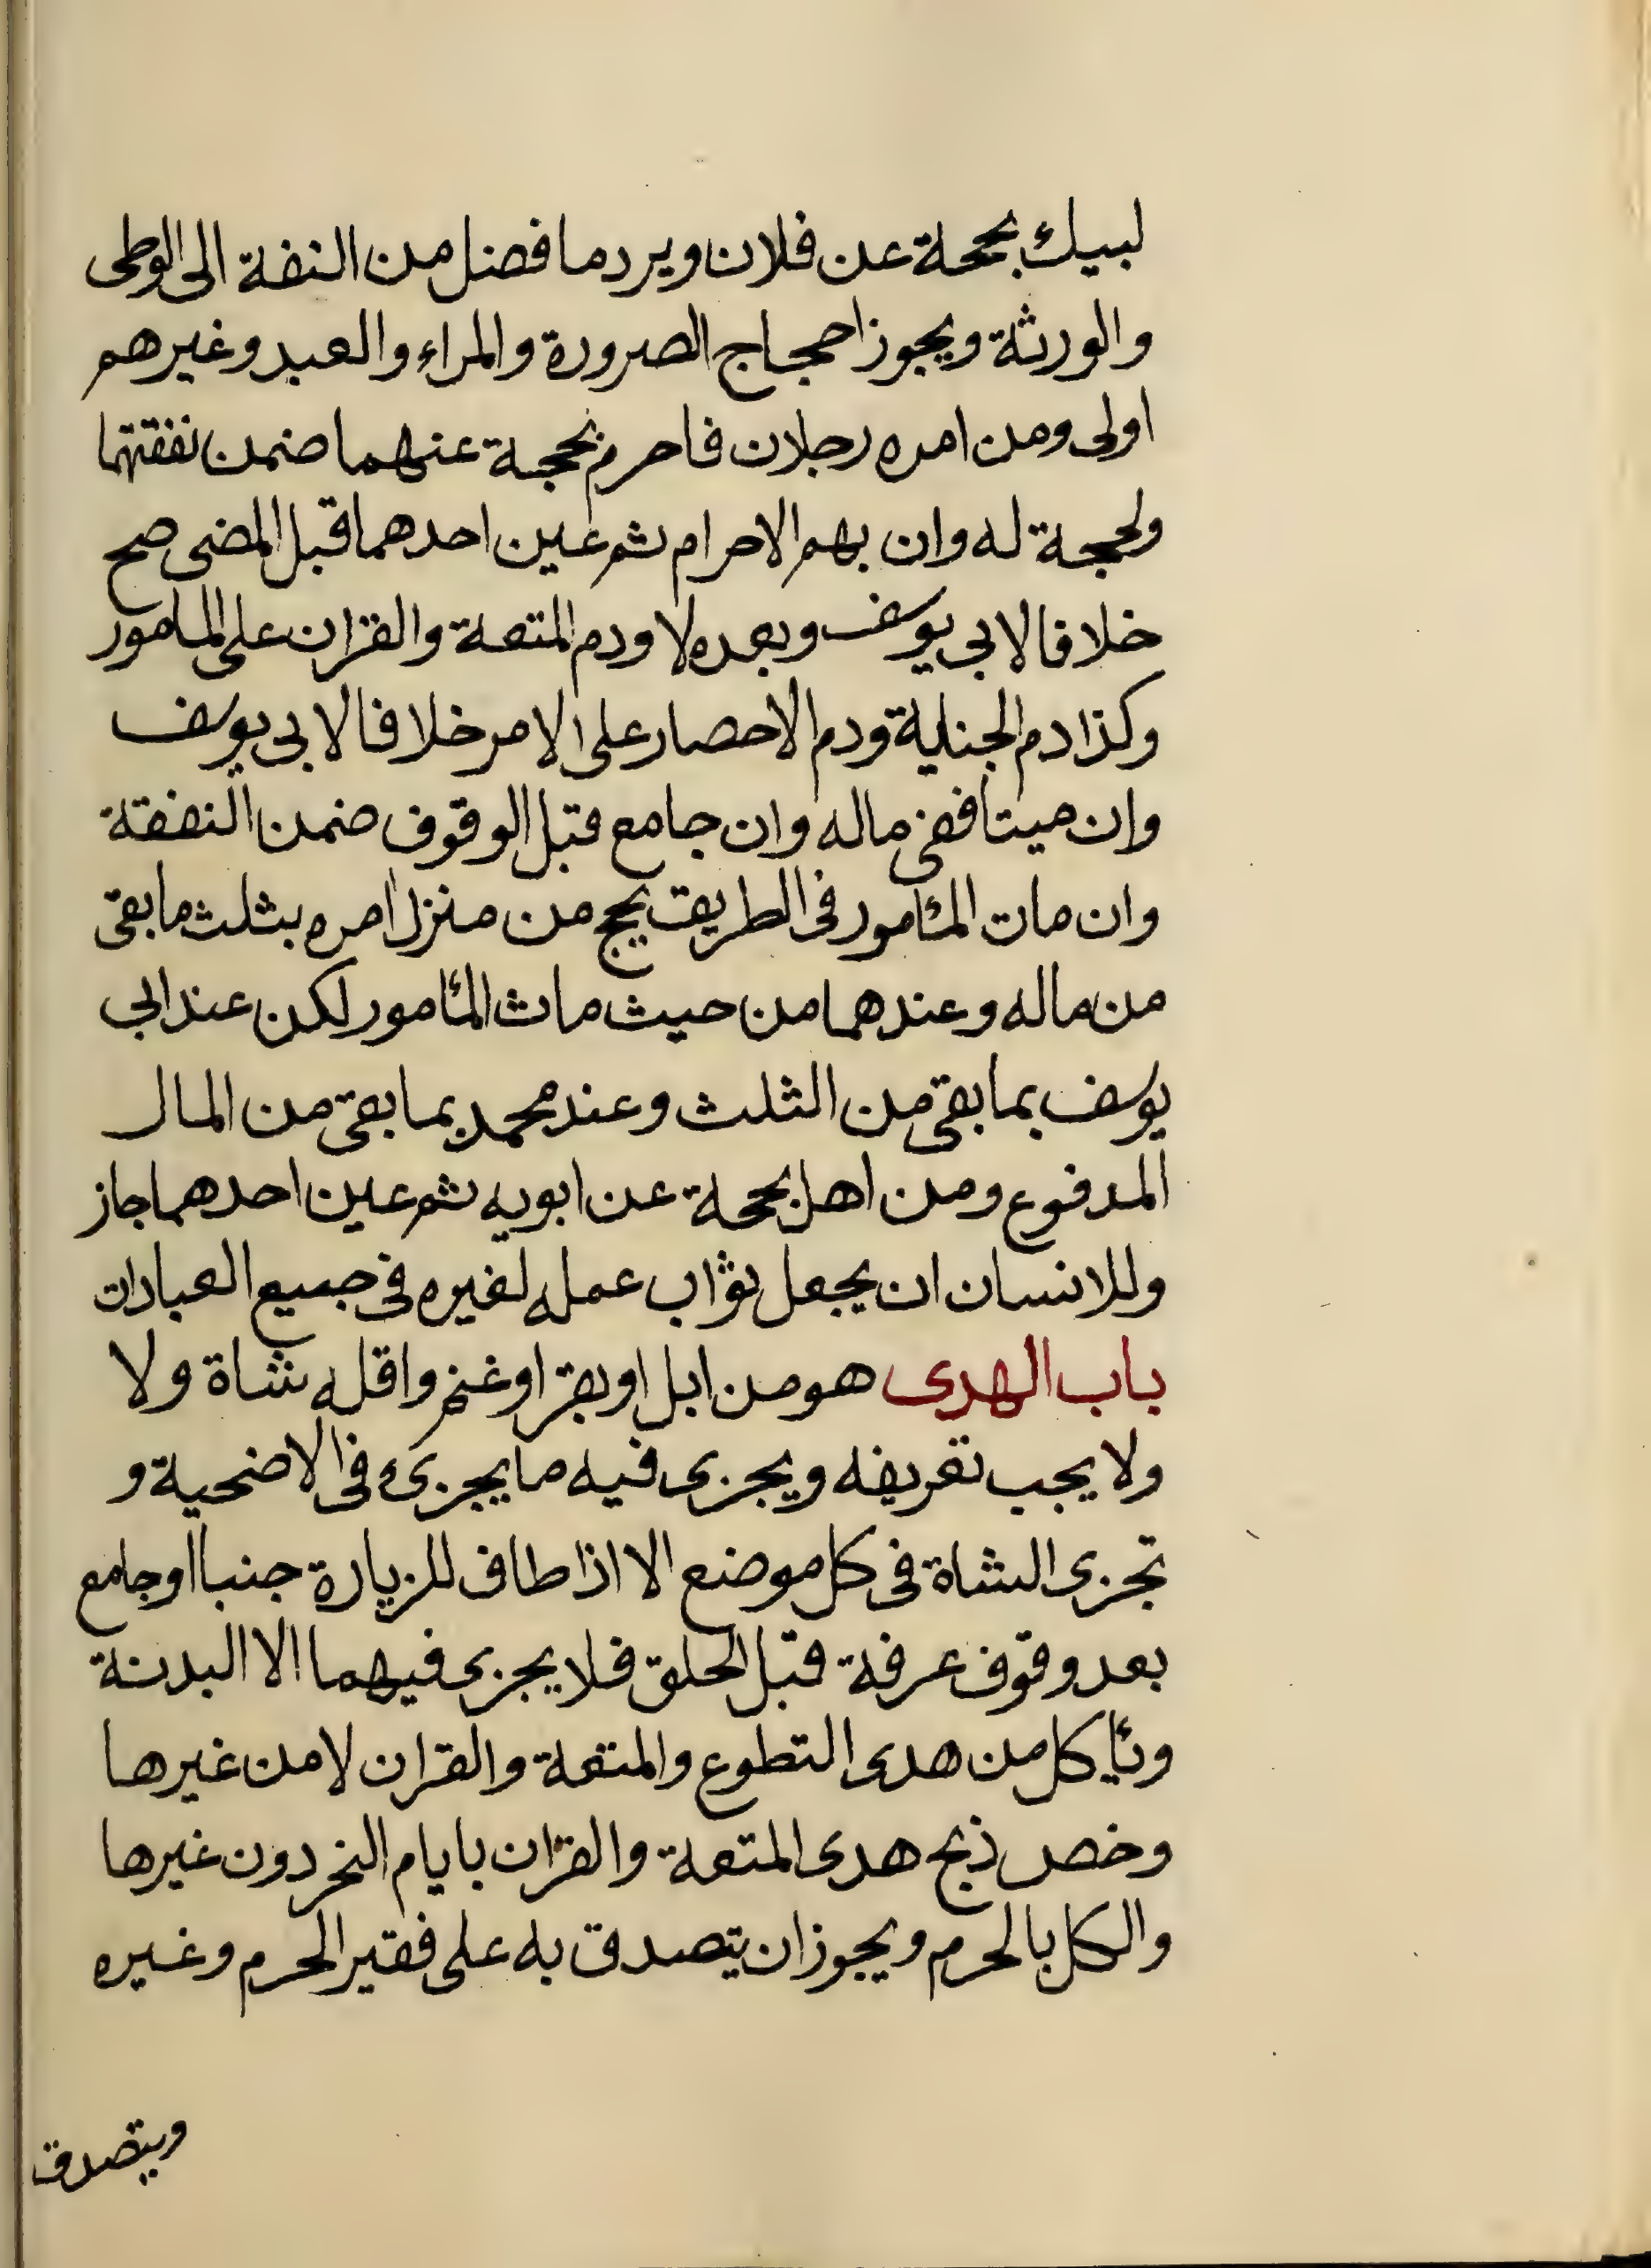 لبيك بحجة عن فلان ويرد ما فضل من النفة الى الوطى
والورثة ويجوز احجاج الصرورة والمراء والعبد وغيرهم
اولى ومن امره رجلان فاحرم بحجة عنهما ضمن نفقتهما
ولحجة له وان بهم الاحرام ثم عين احدهما قبل المضى صح
خلافا لابى يوسف وبعده لا ودم المتعة والقران على المامور
وكذا دم الجناية ودم الاحصار على الامر خلافا لابى يوسف
وان ميتا ففى ماله وان جامع قبل الوقوف ضمن النفقة
وان مات المأمور فى الطريق يحج من منزل امره بثلث ما بقى
من ماله وعندهما من حيث ماث المأمور لكن عند ابى
يوسف بما بقى من الثلث وعند محمد بما بقى من المال
المدفوع ومن اهل بحجة عن ابويه ثم عين احدهما جاز
وللانسان ان يجعل ثواب عمله لغيره فى جميع العبادات
باب الهدى هو من ابل او بقر او غنم واقله شاة ولا
ولا يجب تعريفه ويجزى فيه ما يجزىء فى الاضحية و
تجزى الشاة فى كل موضع الا اذا طاف للزيارة جنبا او جامع
بعد وقوف عرفة قبل الحلق فلا يجزى فيهما الا البدنة
ويأكل من هدى التطوع والمتعة والقران لا من غيرها
وخص ذبح هدى المتعة والقران بايام النحر دون غيرها
والكل بالحرم ويجوز ان يتصدق به على فقير الحرم وغيره
ويتصدق